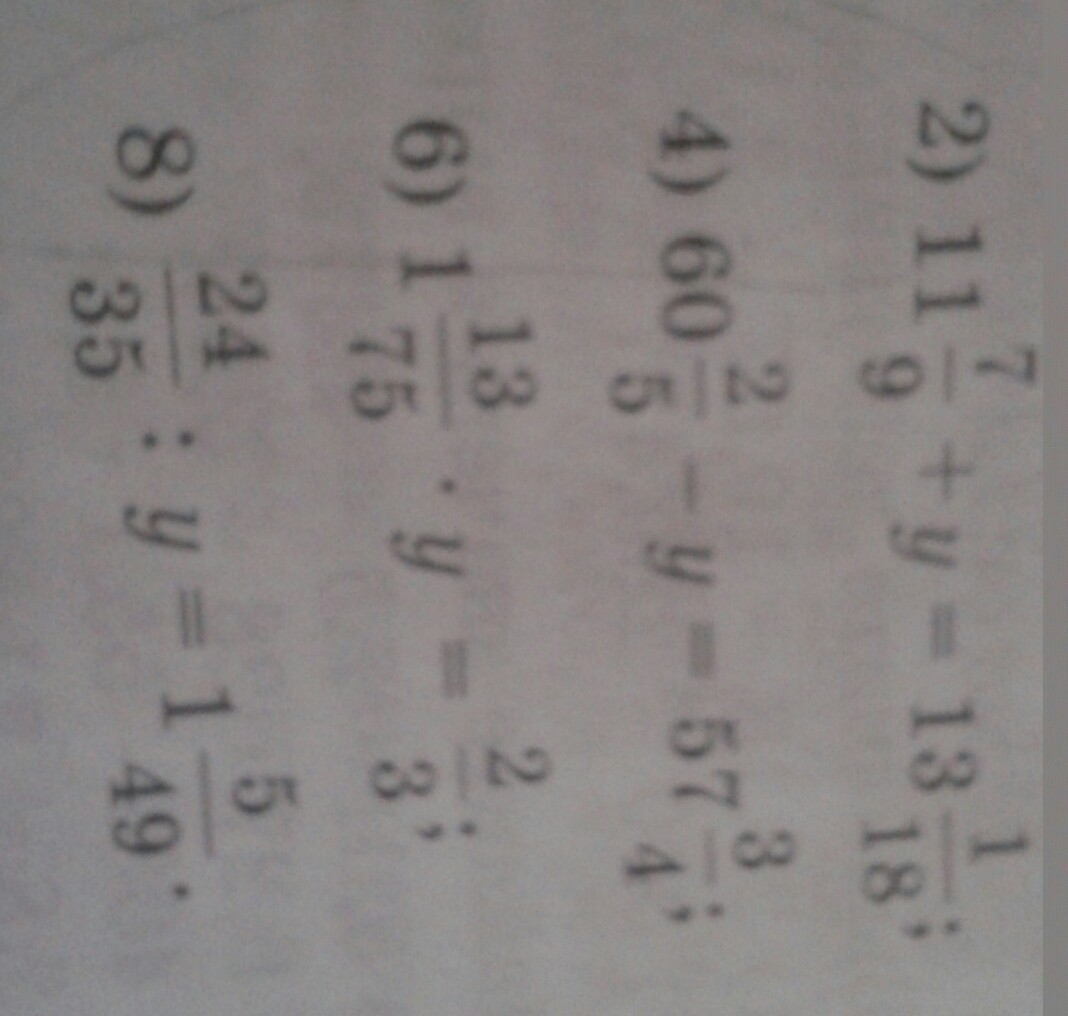 2) 11 7/9 + y = 13 1/18;
4) 60 2/5 − y = 57 3/4;
6) 1 13/75 · y = 2/3;
8) 24/35 : y = 1 5/49.